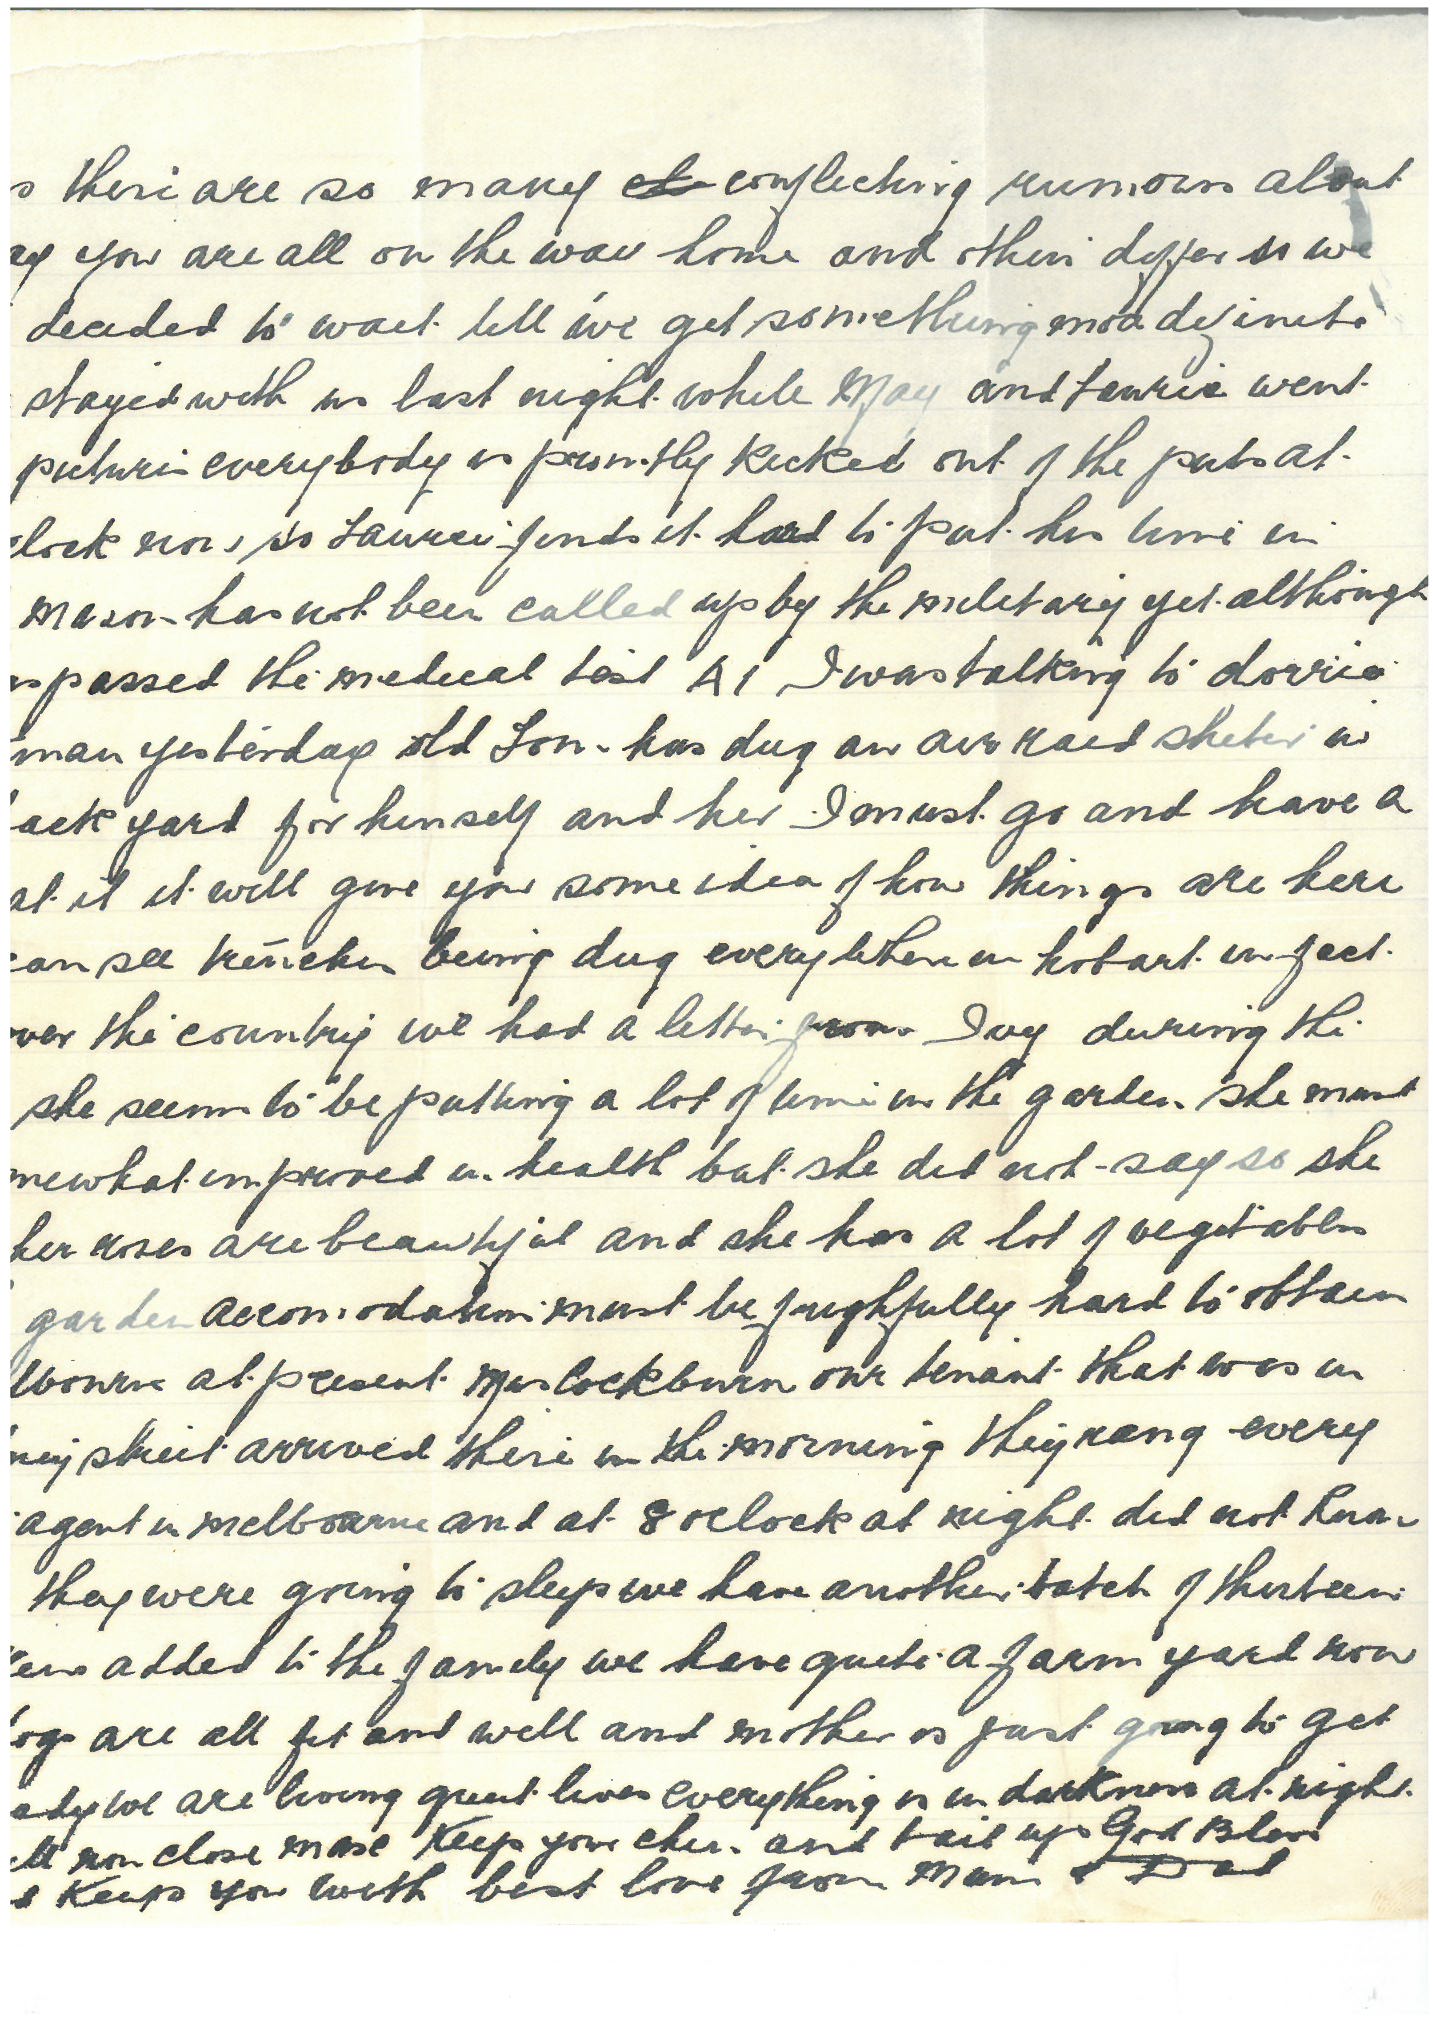 s there are so many conflicting rumours about
ay you are all on the way home and others differ so we
decided to wait till we get something more definite
stayed with us last night while May and Laurie went
pictures everybody is promptly kicked out of the pubs at
clock now so Laurie finds it hard to put his time in
Mason has not been called up by the military yet although
s passed the medical test A1 I was talking to dorrie
man yesterday old Lon has dug an air raid sheter in
ack yard for himself and her I must go and have a
at it it will give you some idea of how things are here
can see trenches being dug everywhere in hobart in fact
over the country we had a letter from Ivy during the
she seems to be putting a lot of time in the garden she must
mewhat improved in health but she did not say so she
her roses are beautiful and she has a lot of vegetables
garden accomodation must be frightfully hard to obtain
lbourne at present Mrs Cockburn our tenant that was in
ney street arrived there in the morning they rang every
agent in melbourne and at 8 oclock at night did not know
they were going to sleep we have another batch of thirteen
kens added to the family we have quite a farm yard now
ogs are all fit and well and mother is just going to get
ady we are living quiet lives everything is in darkness at night
ell now close mate Keep your chin and tail up God Bless
d Keep you with best love from Mum & Dad